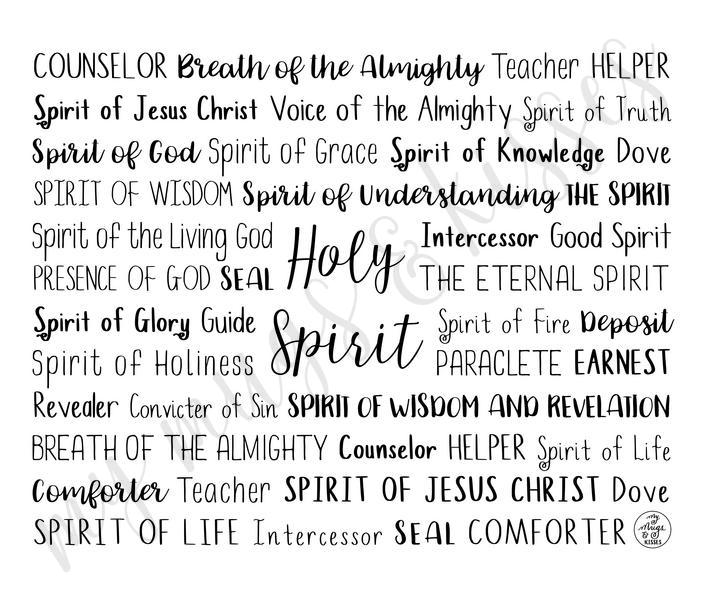 COUNSELOR Breath of the Almighty Teacher HELPER
Spirit of Jesus Christ Voice of the Almighty Spirit of Truth
Spirit of God Spirit of Grace Spirit of Knowledge Dove
SPIRIT OF WISDOM Spirit of Understanding THE SPIRIT
Spirit of the Living God Intercessor Good Spirit
Holy
PRESENCE OF GOD SEAL THE ETERNAL SPIRIT
Spirit of Glory Guide Spirit of Fire Deposit
Spirit
Spirit of Holiness PARACLETE EARNEST
Revealer Convicter of Sin SPIRIT OF WISDOM AND REVELATION
BREATH OF THE ALMIGHTY Counselor HELPER Spirit of Life
Comforter Teacher SPIRIT OF JESUS CHRIST Dove
SPIRIT OF LIFE Intercessor SEAL COMFORTER
my
Mugs
&
KISSES
my mugs & kisses